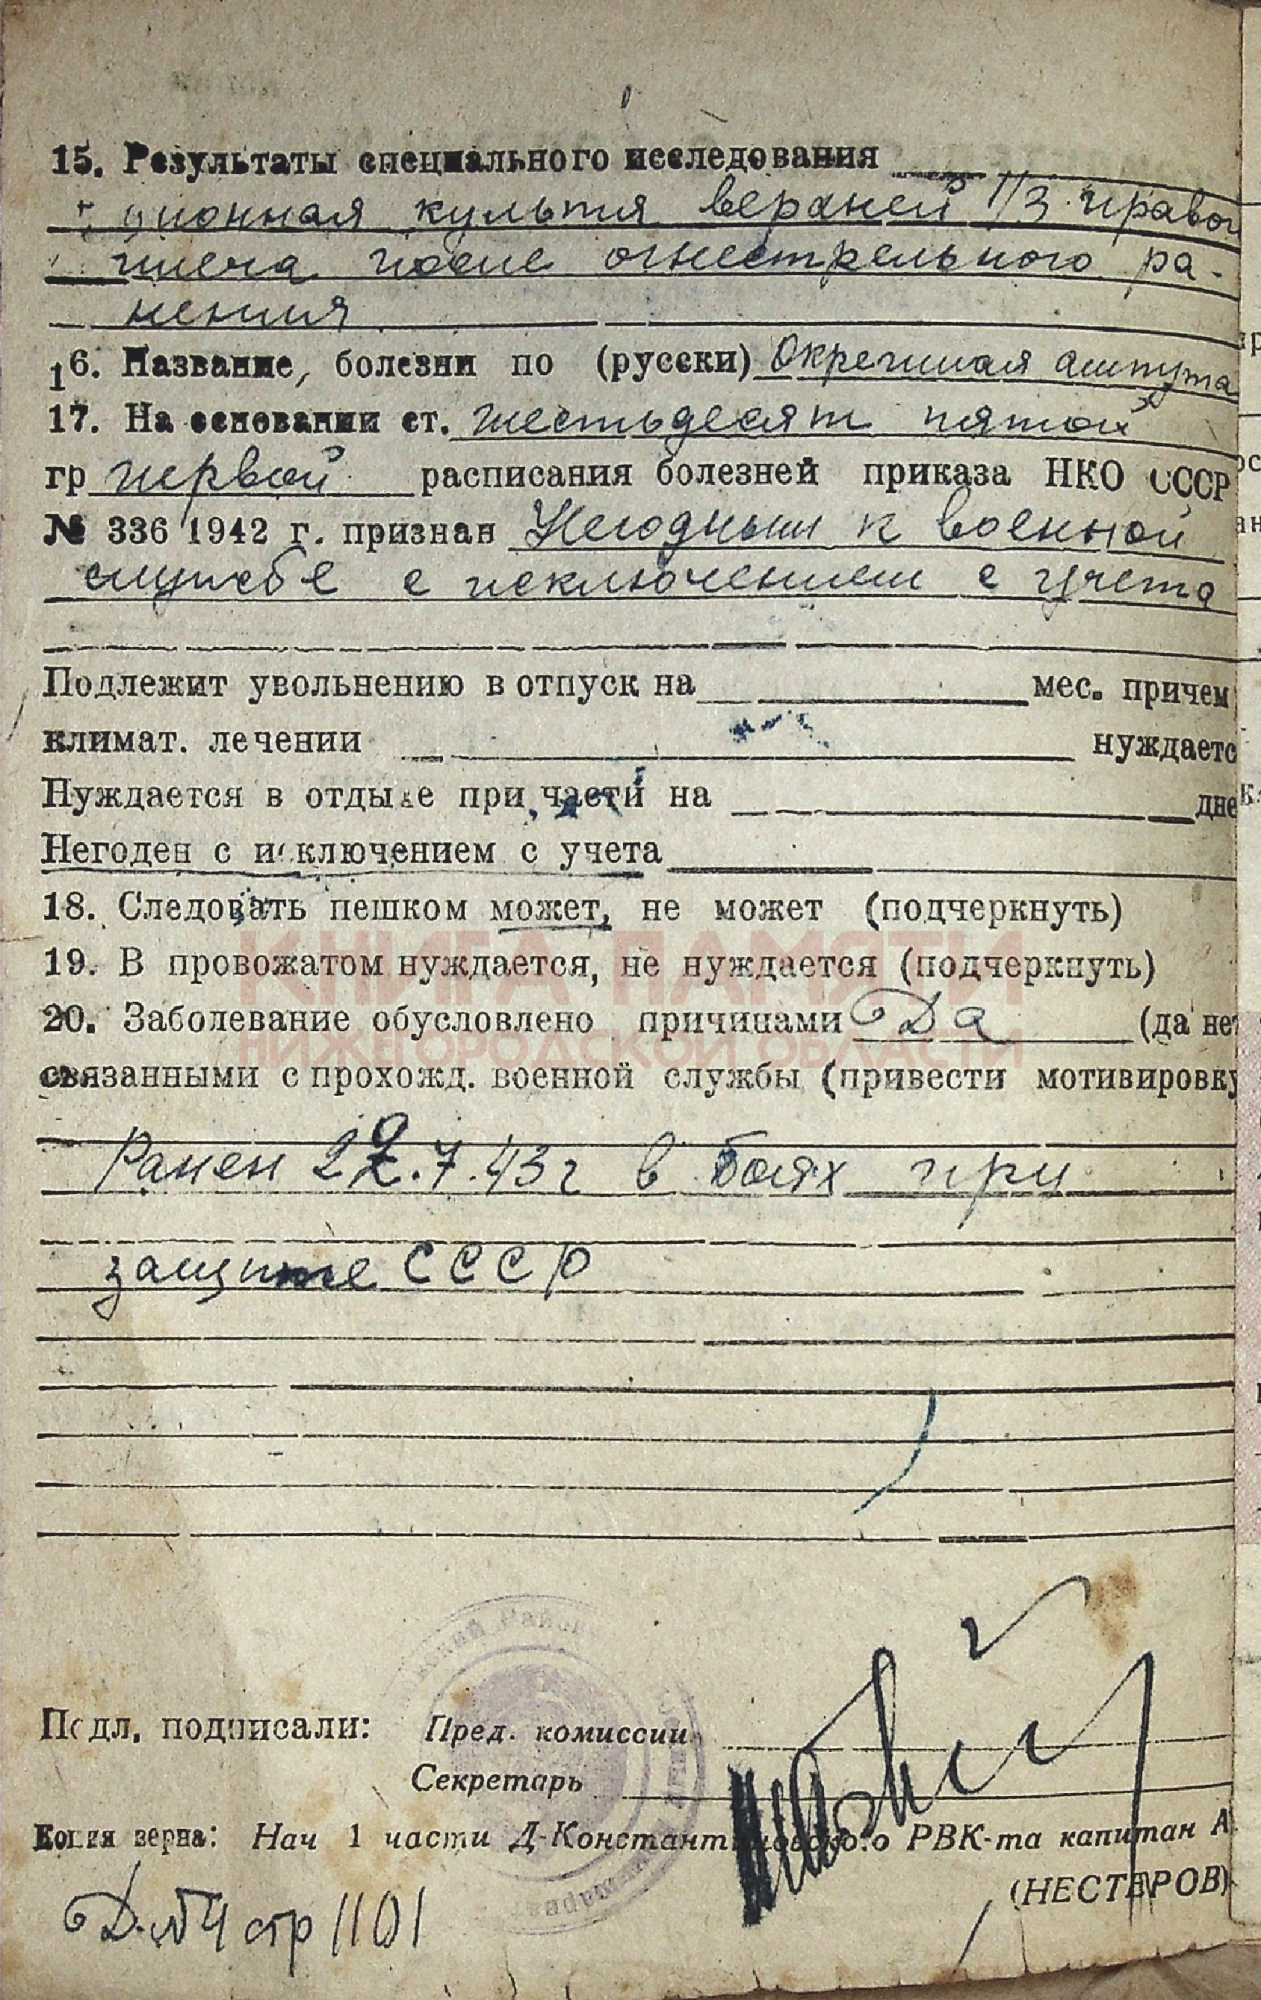 15. Результаты специального исследования
ционная культя верхней 1/3 правог
плеча после огнестрельного ра-
нения
16. Название, болезни по (русски) Окрепшая ампута
17. На основании ст. шестьдесят пятой
гр первой расписания болезней приказа НКО СССР
№ 336 1942 г. признан Негодным к военной
службе с исключением с учета
Подлежит увольнению в отпуск на мес. причем
климат. лечении нуждаетс
Нуждается в отдыхе при части на дне
Негоден с исключением с учета
18. Следовать пешком может, не может (подчеркнуть)
КНИГА ПАМЯТИ
19. В провожатом нуждается, не нуждается (подчеркнуть)
20. Заболевание обусловлено причинами Да (да нет
НИЖЕГОРОДСКОЙ ОБЛАСТИ
связанными с прохожд. военной службы (привести мотивировку
Ранен 22.7.43 г в боях при
защите СССР
Подл, подписали: Пред. комиссии
Секретарь
Копия верна: Нач 1 части Д-Константиновского РВК-та капитан А
(НЕСТЕРОВ)
Д. №4 стр 1101